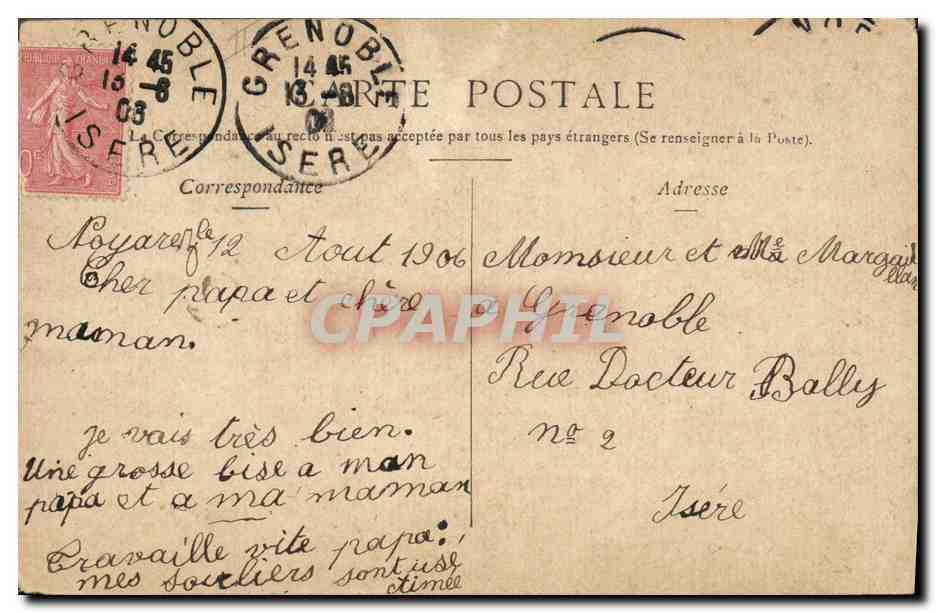 GRENOBLE
14 45
13 -8
06
ISERE
GRENOBLE
14 45
13 -8
ISERE
CARTE POSTALE
La Correspondance au recto n'est pas acceptée par tous les pays étrangers (Se renseigner à la Poste).
Correspondance
Noyarey le 12 Aout 1906
Cher papa et chère
maman.
je vais très bien.
Une grosse bise a man
papa et a ma maman
Travaille vite papa:
mes souliers sont use
Adresse
Momsieur et Me Margail
llan
a Grenoble
Rue Docteur Bally
no 2
Isére
CPAPHIL